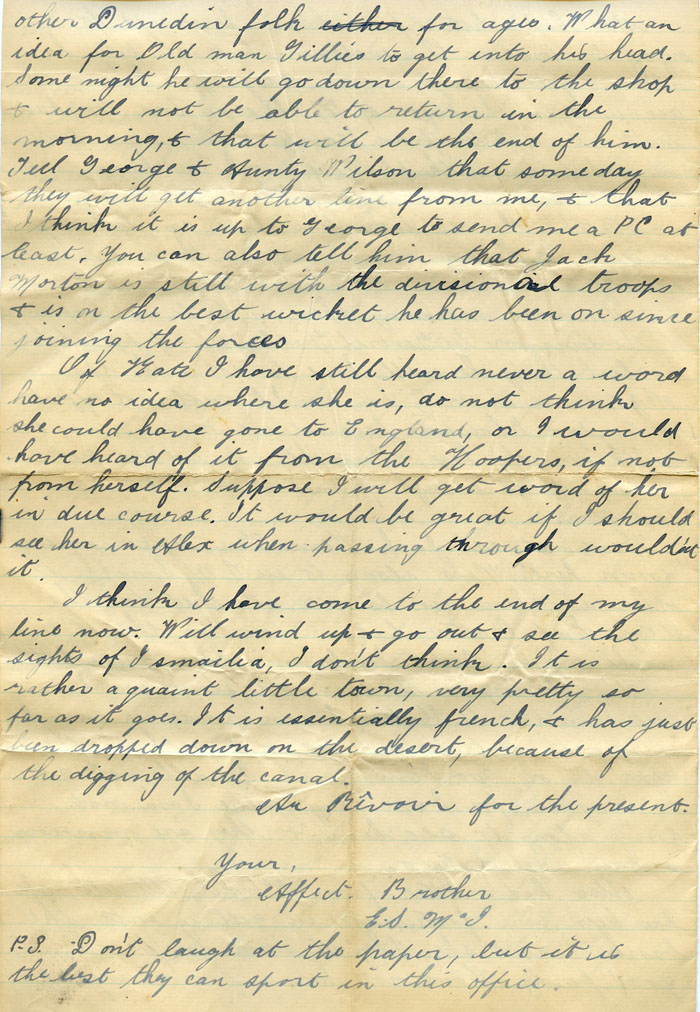 other Dunedin folk either for ages. What an
idea for Old man Gillies to get into his head.
Some night he will go down there to the shop
& will not be able to return in the
morning, & that will be the end of him.
Tell George & Aunty Wilson that some day
they will get another line from me, & that
I think it is up to George to send me a PC at
least. You can also tell him that Jack
Morton is still with the divisional troops
& is on the best wicket he has been on since
joining the forces
Of Kate I have still heard never a word
have no idea where she is, do not think
she could have gone to England, or I would
have heard of it from the Hoopers, if not
from herself. Suppose I will get word of her
in due course. It would be great if I should
see her in Alex when passing through wouldn't
it.
I think I have come to the end of my
line now. Will wind up & go out & see the
sights of Ismailia, I don't think. It is
rather a quaint little town, very pretty so
far as it goes. It is essentially french, & has just
been dropped down on the desert, because of
the digging of the canal.
Au Rêvoir for the present.
Your,
Affect. Brother
E.S. McI.
P.S. Don't laugh at the paper, but it is
the best they can sport in this office.